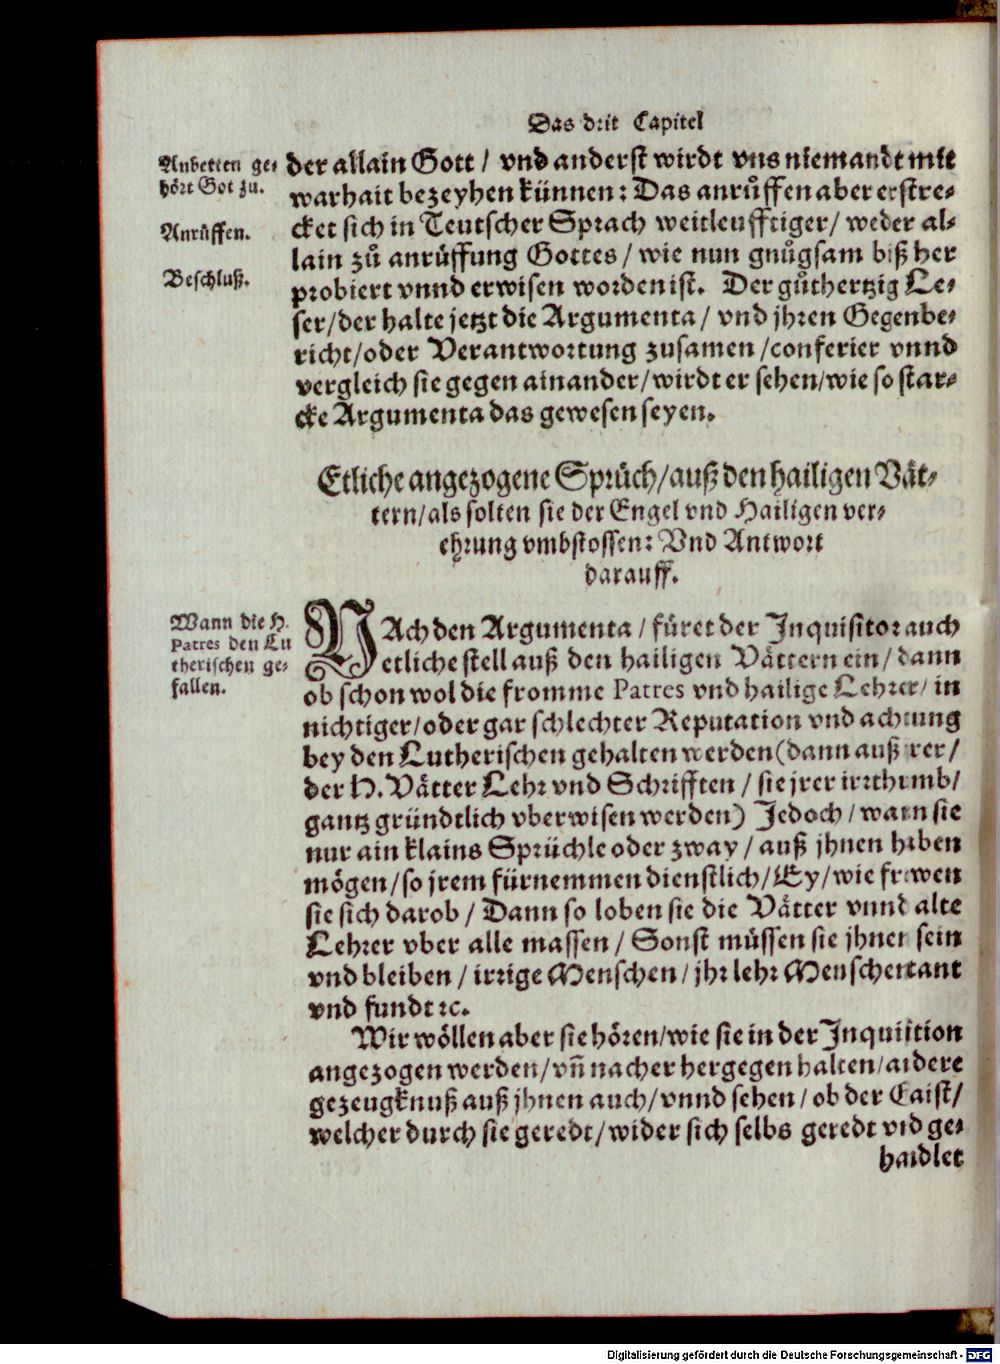 Das drit Capitel
Anbetten ge-
hört Got zu.
Anrůffen.
Beschluß.
der allain Gott / vnd anderst wirdt vns niemandt mit
warhait bezeyhen künnen: Das anrůffen aber erstre-
cket sich in Teutscher Sprach weitleufftiger / weder al-
lain zů anrůffung Gottes / wie nun gnůgsam biß her
probiert vnnd erwisen worden ist. Der gůthertzig Le-
ser / der halte jetzt die Argumenta / vnd jhren Gegenbe-
richt / oder Verantwortung zusamen / conferier vnnd
vergleich sie gegen ainander / wirdt er sehen / wie so star-
cke Argumenta das gewesen seyen.
Etliche angezogene Sprüch / auß den hailigen Vät-
tern / als solten sie der Engel vnd Hailigen ver-
ehrung vmbstossen: Vnd Antwort
darauff.
Wann die H.
Patres den Lu
therischen ge-
fallen.
NAch den Argumenta / füret der Inquisitor auch
etliche stell auß den hailigen Vättern ein / dann
ob schon wol die fromme Patres vnd hailige Lehrer / in
nichtiger / oder gar schlechter Reputation vnd achtung
bey den Lutherischen gehalten werden (dann auß rer /
der H. Vätter Lehr vnd Schrifften / sie jrer irrthumb /
gantz gründtlich vberwisen werden) Jedoch / wann sie
nur ain klains Sprüchle oder zway / auß jhnen haben
mögen / so jrem fürnemmen dienstlich / Ey / wie frewen
sie sich darob / Dann so loben sie die Vätter vnnd alte
Lehrer vber alle massen / Sonst müssen sie jhnen sein
vnd bleiben / irrige Menschen / jhr lehr Menschentant
vnd fundt ꝛc.
Wir wöllen aber sie hören / wie sie in der Inquisition
angezogen werden / vñ nacher hergegen halten / andere
gezeugknuß auß jhnen auch / vnnd sehen / ob der Gaist /
welcher durch sie geredt / wider sich selbs geredt vnd ge-
handlet
Digitalisierung gefördert durch die Deutsche Forschungsgemeinschaft - DFG